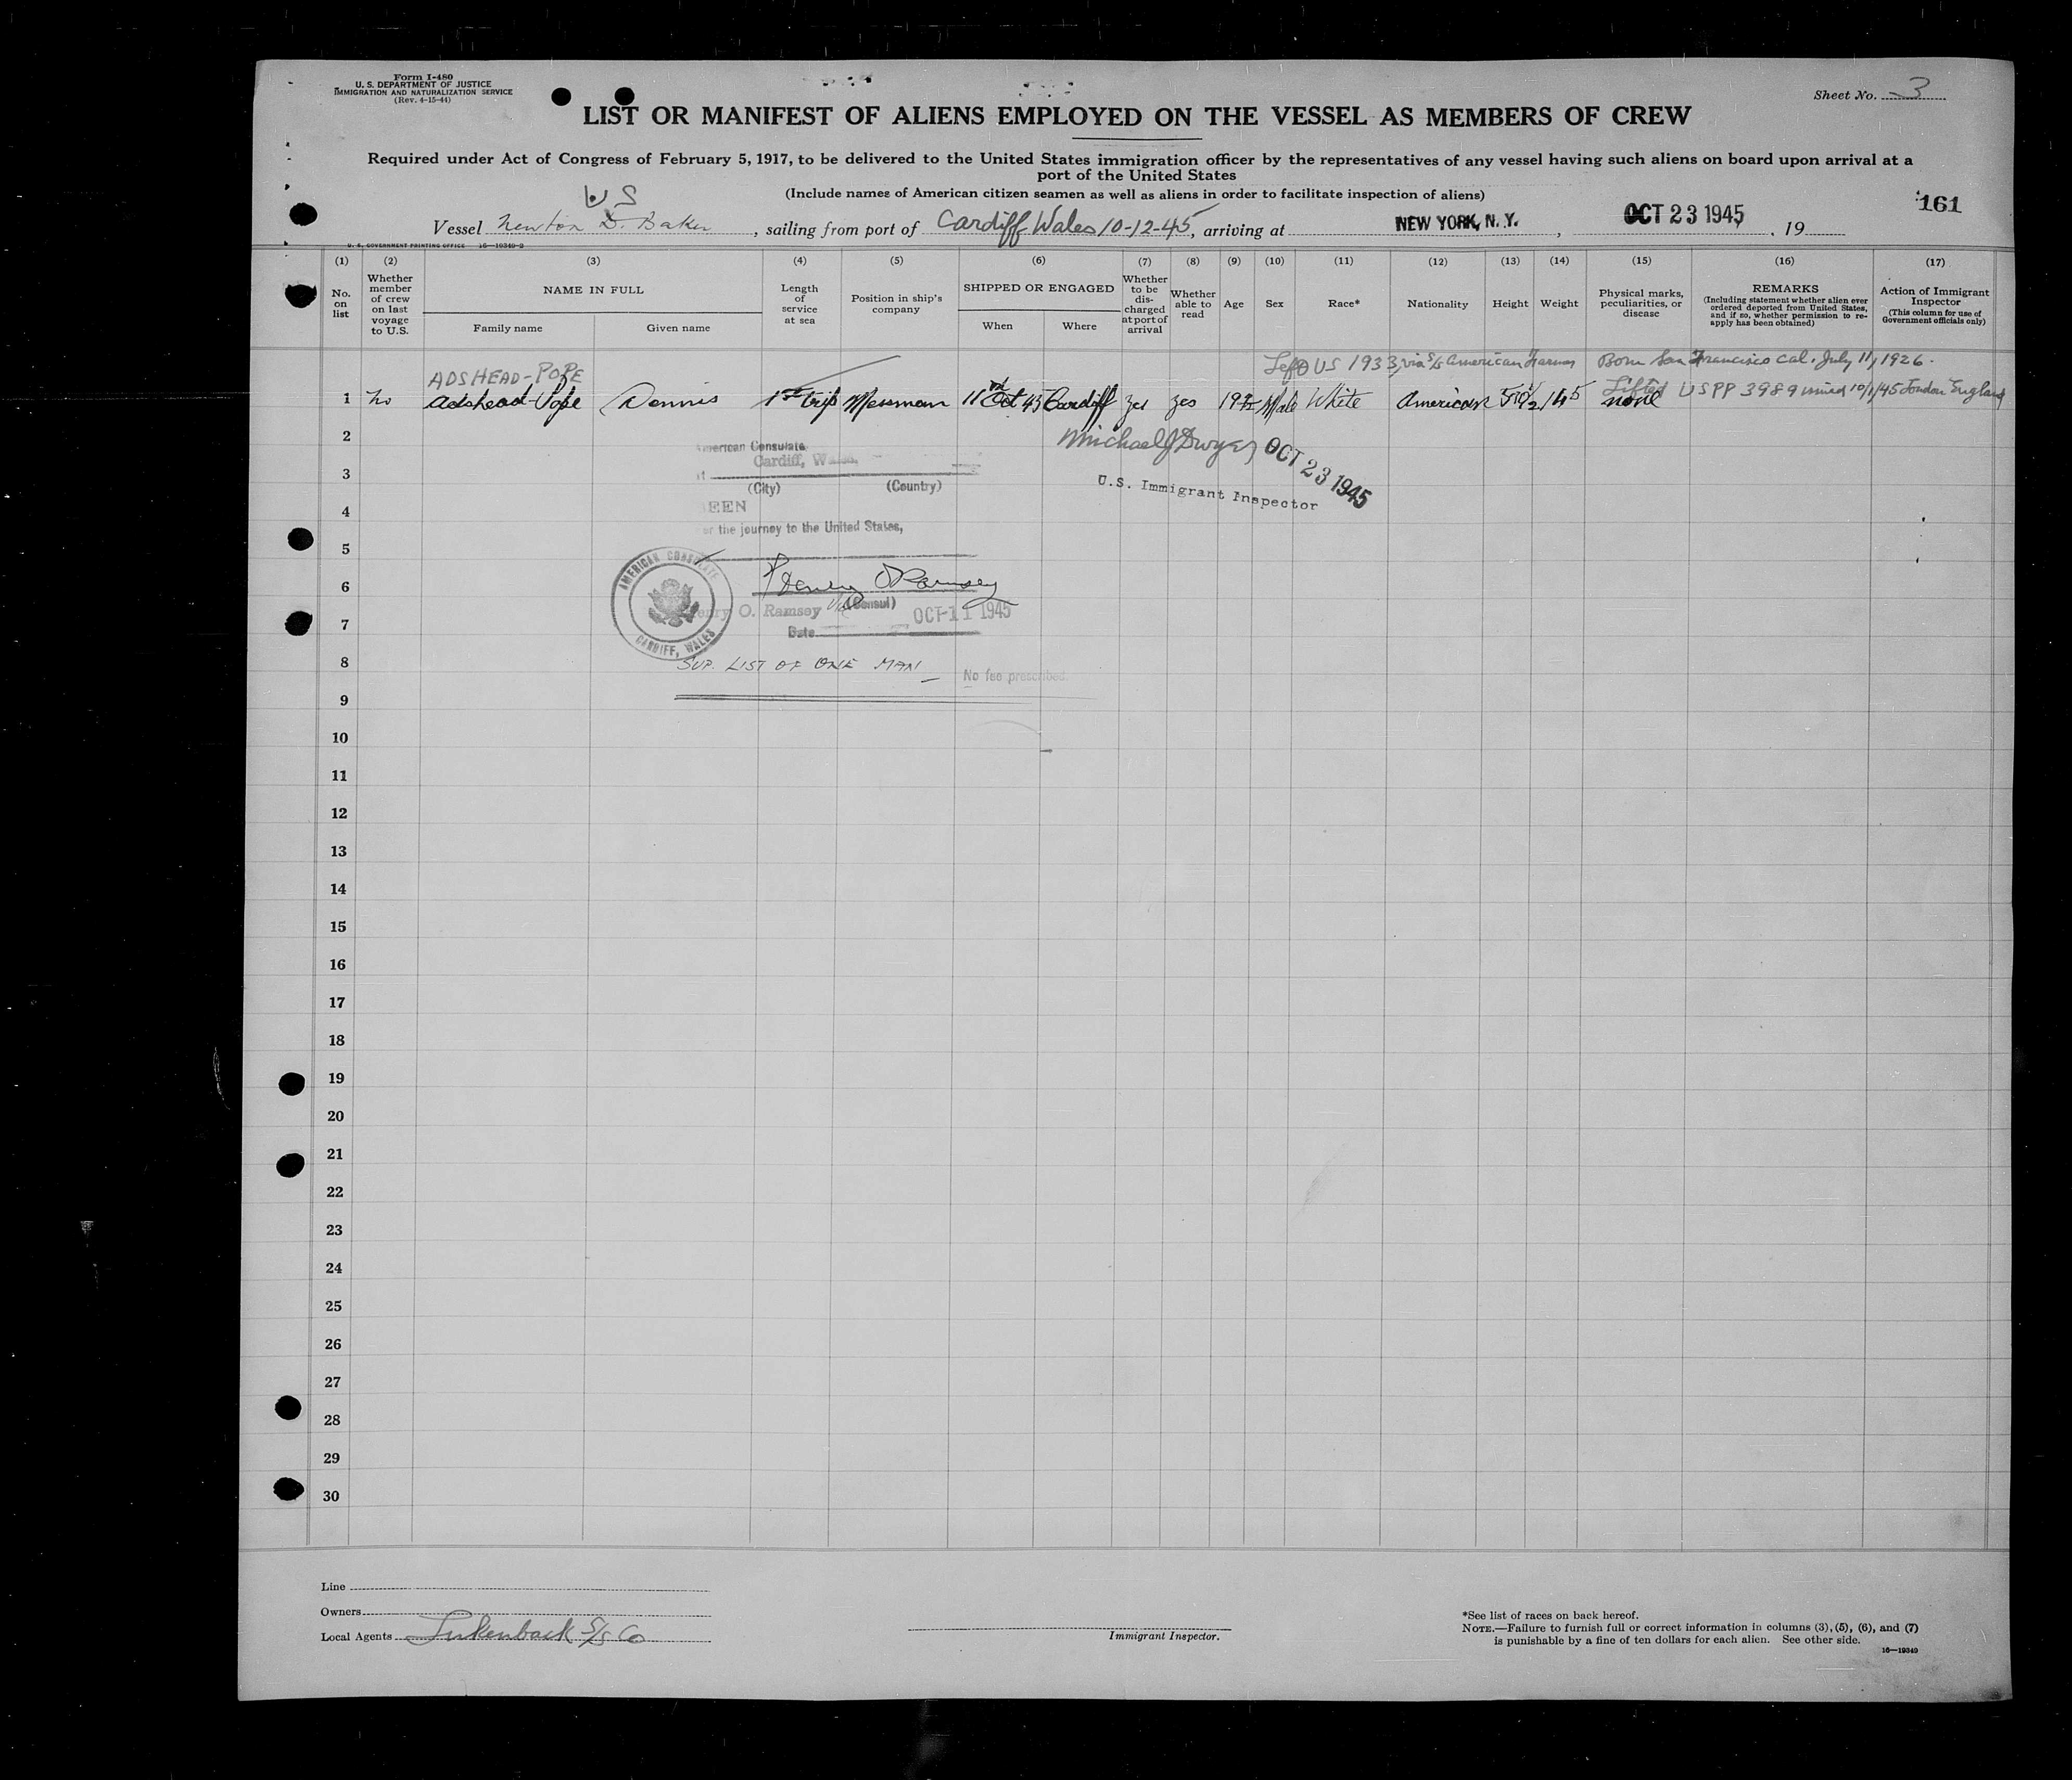 Form I-480
U. S. DEPARTMENT OF JUSTICE
IMMIGRATION AND NATURALIZATION SERVICE
(Rev. 4-15-44)
Sheet No. 3
LIST OR MANIFEST OF ALIENS EMPLOYED ON THE VESSEL AS MEMBERS OF CREW
Required under Act of Congress of February 5, 1917, to be delivered to the United States immigration officer by the representatives of any vessel having such aliens on board upon arrival at a
port of the United States
(Include names of American citizen seamen as well as aliens in order to facilitate inspection of aliens)
US
161
Vessel Newton D. Baker, sailing from port of Cardiff Wales 10-12-45, arriving at NEW YORK, N. Y., OCT 23 1945, 19
U. S. GOVERNMENT PRINTING OFFICE 16—19349-2
(1) (2) (3) (4) (5) (6) (7) (8) (9) (10) (11) (12) (13) (14) (15) (16) (17)
No. on list
Whether member of crew on last voyage to U.S.
NAME IN FULL
Family name
Given name
Length of service at sea
Position in ship's company
SHIPPED OR ENGAGED
When
Where
Whether to be discharged at port of arrival
Whether able to read
Age
Sex
Race*
Nationality
Height
Weight
Physical marks, peculiarities, or disease
REMARKS
(Including statement whether alien ever ordered deported from United States, and if so, whether permission to reapply has been obtained)
Action of Immigrant Inspector
(This column for use of Government officials only)
Left US 1933, via S/S American Farmer Born San Francisco Cal. July 11, 1926.
ADSHEAD-POPE
Lifted USPP 3989 issued 10/1/45 London England
1 No Adshead-Pope Dennis 1st trip Messman 11 Oct 45 Cardiff yes yes 19 Male White American 5'10½ 145 none
2
Michael J Dwyer OCT 23 1945
U.S. Immigrant Inspector
American Consulate
Cardiff, Wales.
3
(City) (Country)
4
SEEN
for the journey to the United States,
5
AMERICAN CONSULATE
CARDIFF, WALES
6
Henry O Ramsey
Henry O. Ramsey Vice (Consul)
7
Date OCT 11 1945
8
SUP. LIST OF ONE MAN
No fee prescribed
9
10
11
12
13
14
15
16
17
18
19
20
21
22
23
24
25
26
27
28
29
30
Line
Owners
Local Agents Lukenback S/S Co
Immigrant Inspector.
*See list of races on back hereof.
NOTE.—Failure to furnish full or correct information in columns (3), (5), (6), and (7)
is punishable by a fine of ten dollars for each alien. See other side.
16—19349